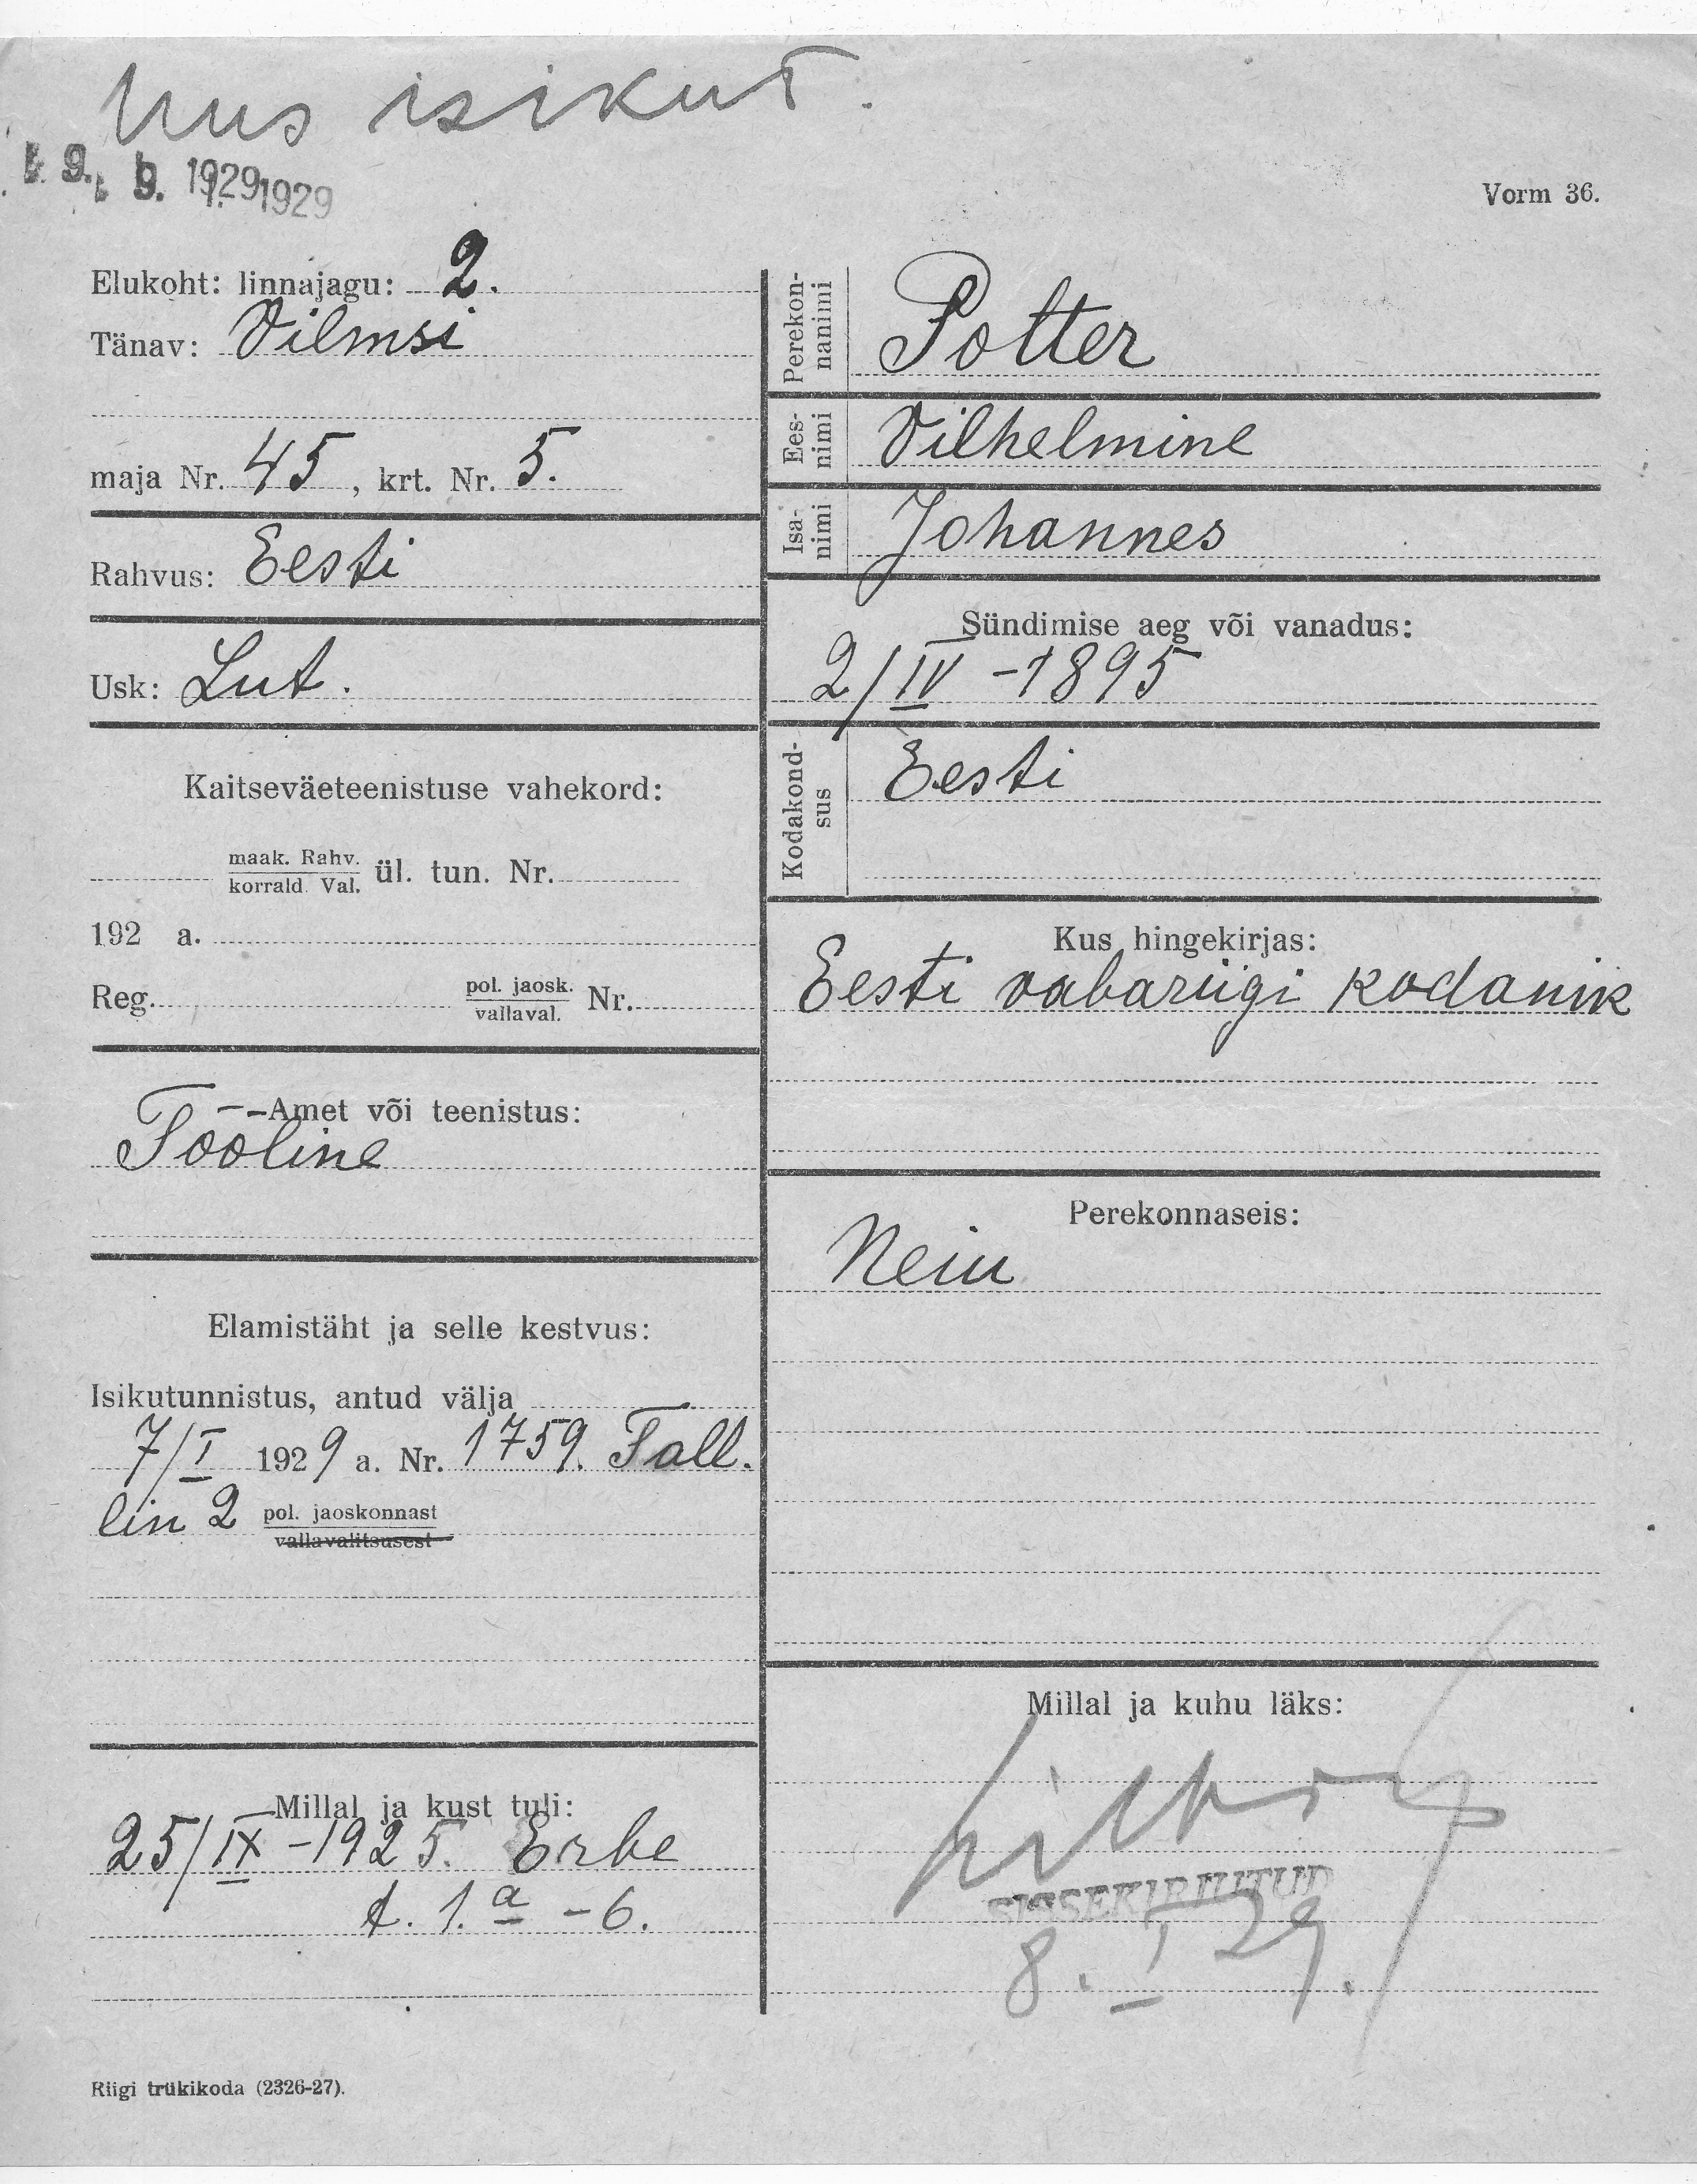 Uus isikut.
9. 1929 1929
Vorm 36.
Elukoht: linnajagu: 2.
Tänav: Vilmsi
maja Nr. 45, krt. Nr. 5.
Rahvus: Eesti
Usk: Lut.
Kaitseväeteenistuse vahekord:
maak. Rahv.
korrald. Val. ül. tun. Nr.
192 a.
Reg. pol. jaosk. Nr.
vallaval.
Amet või teenistus:
Tööline
Elamistäht ja selle kestvus:
Isikutunnistus, antud välja
7/I 1929 a. Nr. 1759. Tall.
lin 2 pol. jaoskonnast
vallavalitsusest
Millal ja kust tuli:
25/IX -1925. Erbe
t. 1.a -6.
Riigi trükikoda (2326-27).
Perekon-
nanimi
Potter
Ees-
nimi
Vilhelmine
Isa-
nimi
Johannes
Sündimise aeg või vanadus:
2/IV -1895
Kodakond-
sus
Eesti
Kus hingekirjas:
Eesti vabariigi kodanik
Perekonnaseis:
Neiu
Millal ja kuhu läks:
SISSEKIRJUTUD
8. I 29.